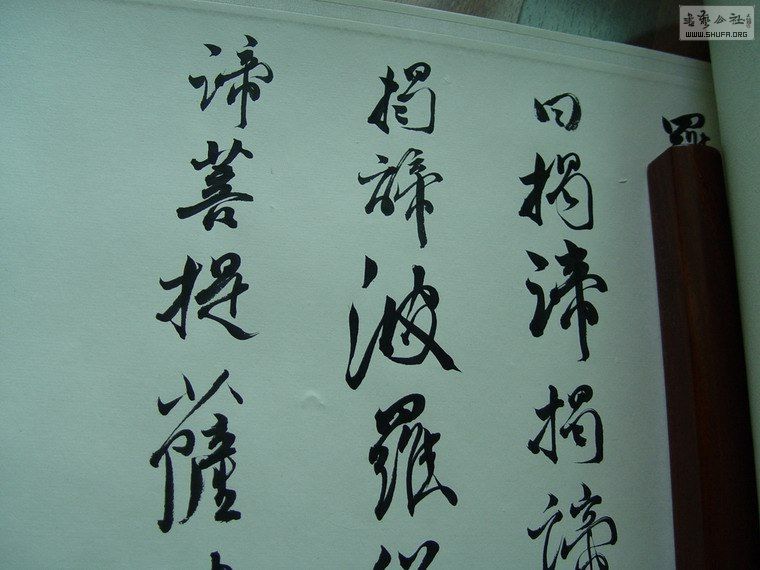 羅
曰揭諦揭諦
揭諦波羅僧
諦菩提薩
書藝公社
WWW.SHUFA.ORG